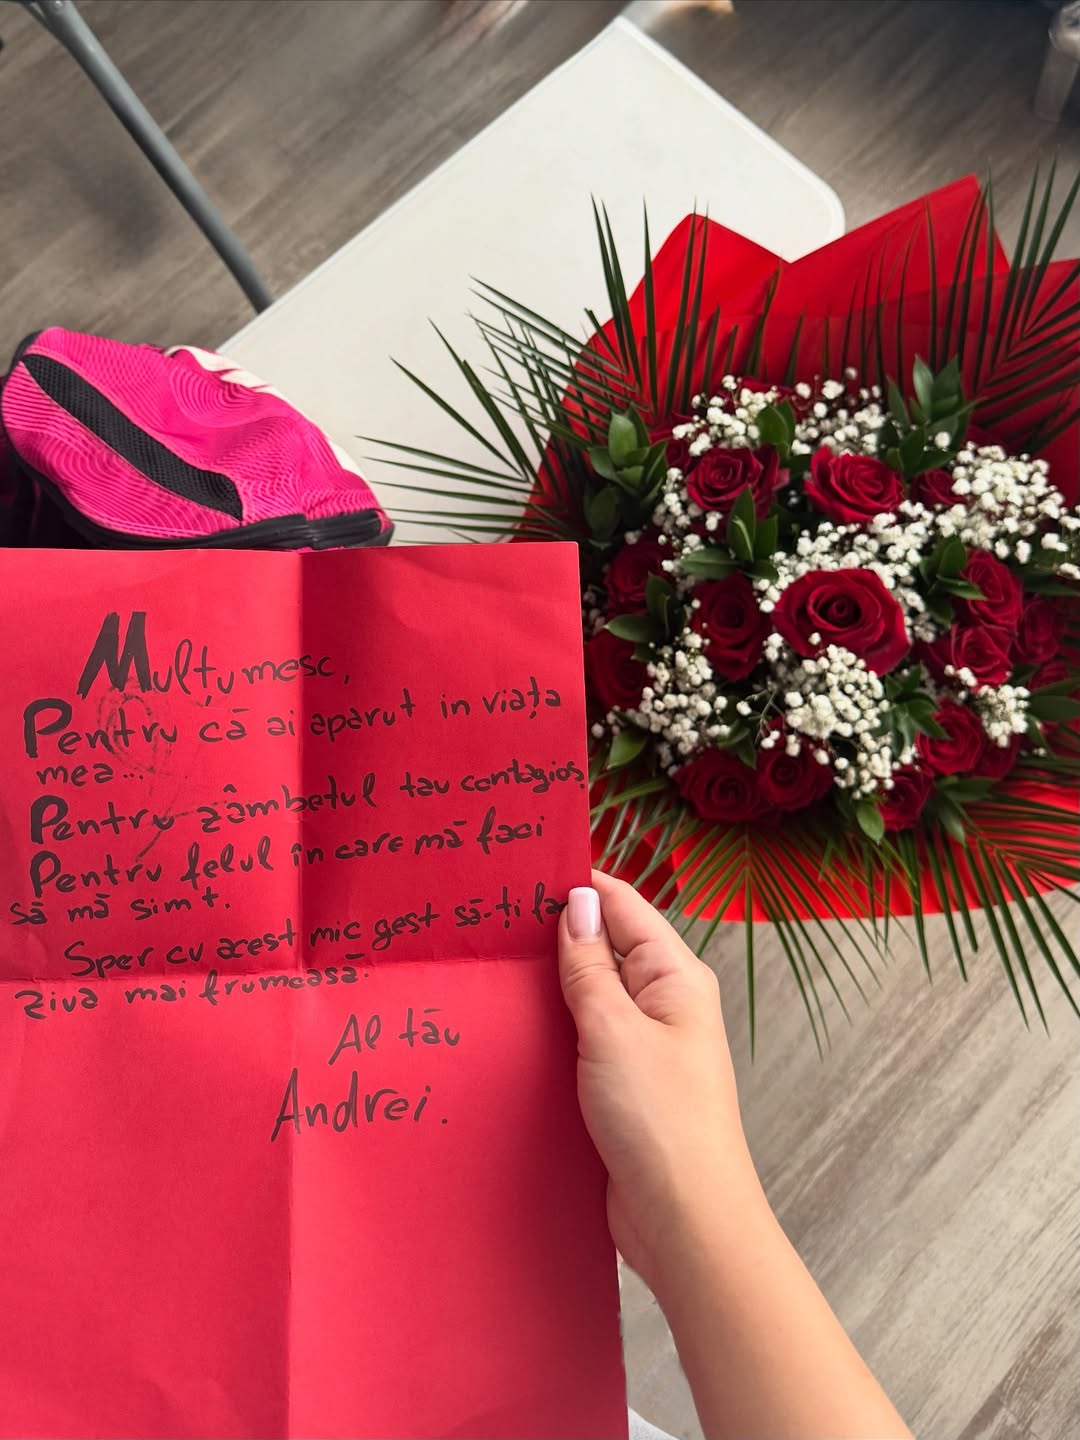 Mulțumesc,
Pentru că ai apărut in viața
mea...
Pentru zâmbetul tau contagios,
Pentru felul în care mă faci
să mă simt.
Sper cu acest mic gest să-ți fa
ziua mai frumoasă.
Al tău
Andrei.